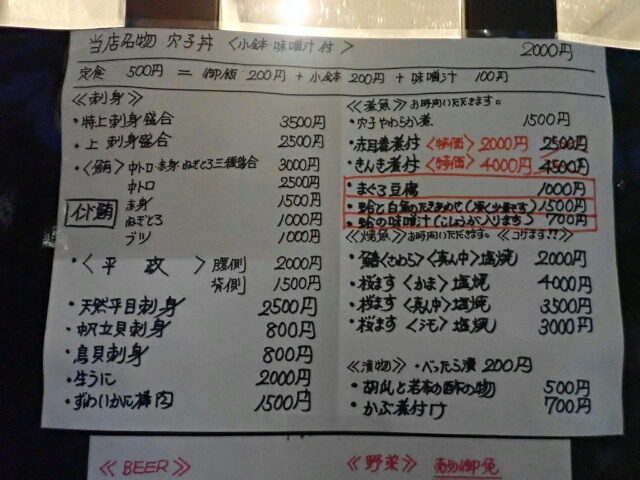 当店名物 穴子丼 〈小鉢・味噌汁付〉 2000円
定食 500円 = 御飯 200円 + 小鉢 200円 + 味噌汁 100円
≪刺身≫
・特上刺身盛合 3500円
・上刺身盛合 2500円
・〈鮪〉中トロ・赤身・ねぎとろ三種盛合 3000円
中トロ 2500円
インド鮪
赤身 1500円
ねぎとろ 1000円
ブツ 1000円
・〈平政〉腹側 2000円
背側 1500円
・天然平目刺身 2500円
・帆立貝刺身 800円
・鳥貝刺身 800円
・生うに 2000円
・ずわいかに棒肉 1500円
≪煮魚≫お時間いただきます。
・穴子やわらか煮 1500円
・赤目鯛煮付〈特価〉2000円 2500円
・きんき煮付〈特価〉4000円 4500円
・まぐろ豆腐 1000円
・蛤と白魚のたきあわせ 1500円
・蛤の味噌汁(こしょうが入ります) 700円
≪焼魚≫お時間いただきます。≪コゲます!!≫
・鰆〈さわら〉〈真ん中〉塩焼 2000円
・桜ます〈かま〉塩焼 4000円
・桜ます〈真ん中〉塩焼 3500円
・桜ます〈シモ〉塩焼 3000円
≪漬物≫・べったら漬 200円
・胡瓜と若布の酢の物 500円
・かぶ煮付け 700円
≪BEER≫
≪野菜≫ 売切御免